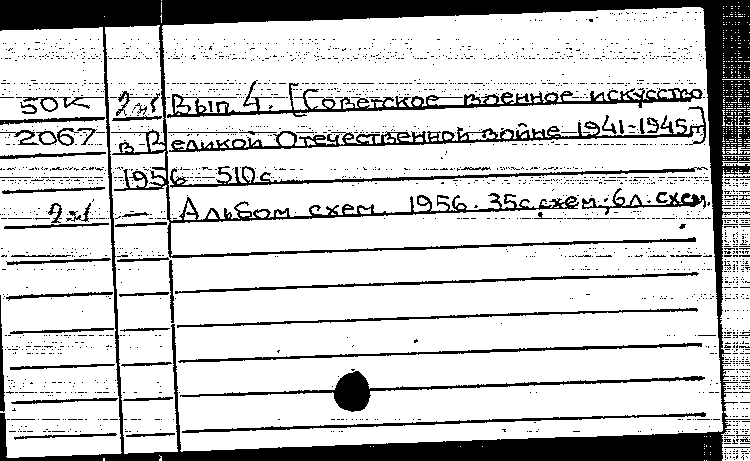 50К 2экз Вып. 4. [Советское военное искусство
2067 в Великой Отечественной войне 1941-1945гг]
1956 510с.
2экз — Альбом схем. 1956. 35с.схем; 6л. схем.